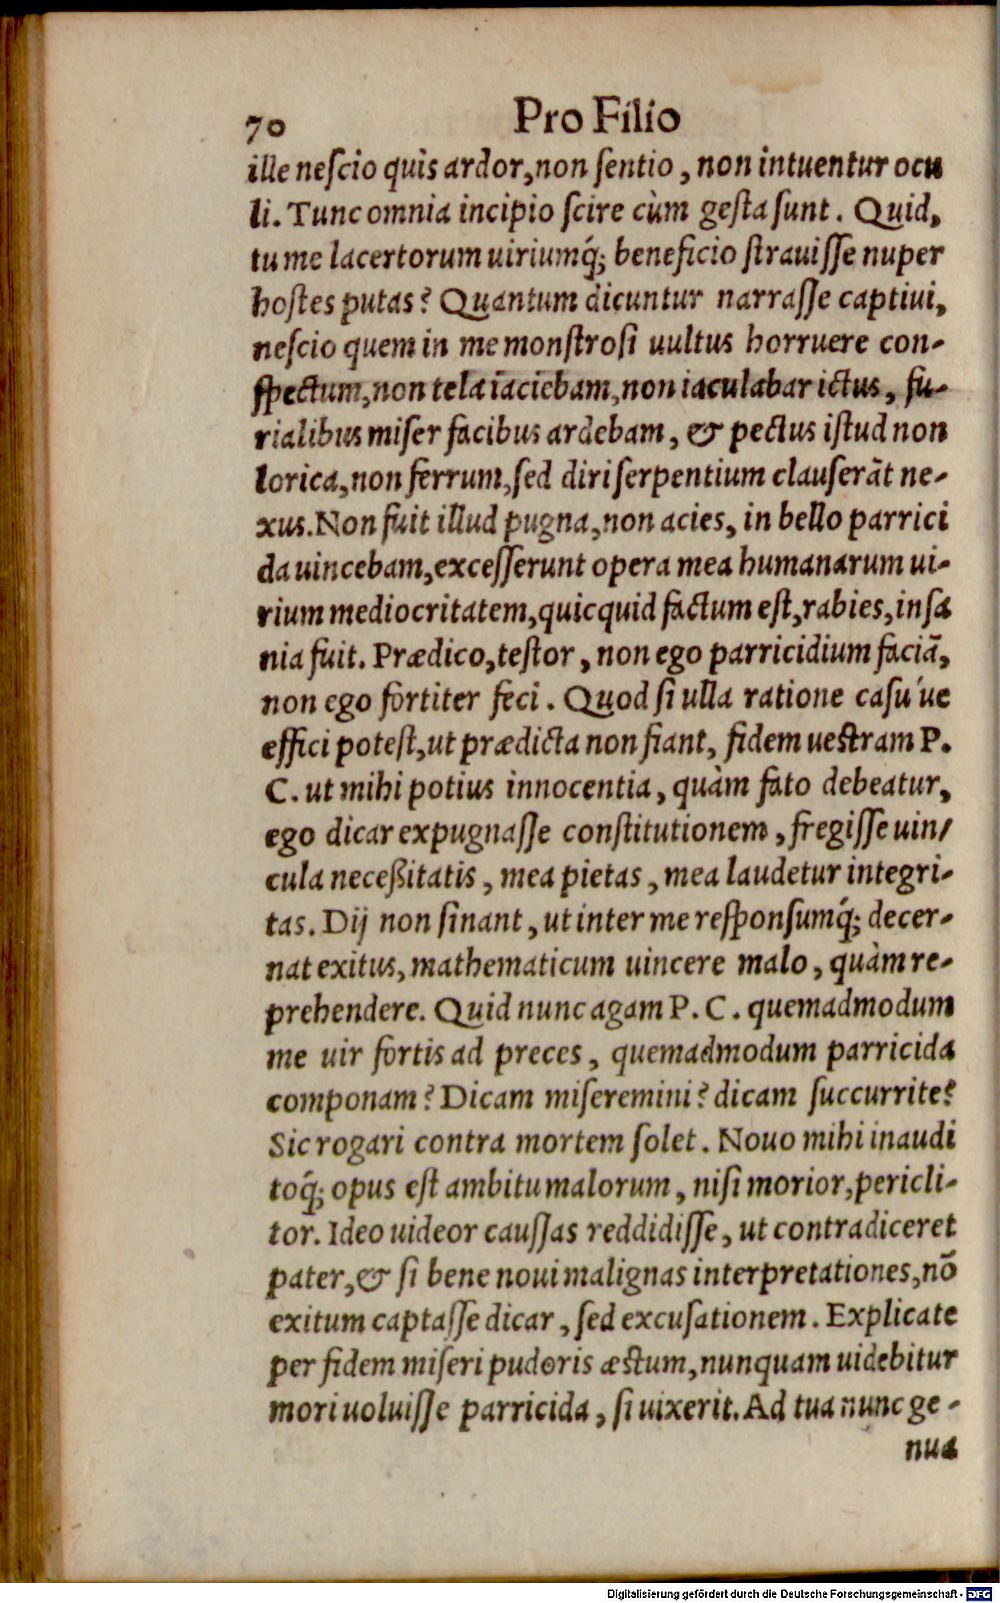 70 Pro Filio
ille neſcio quis ardor, non ſentio, non intuentur ocu
li. Tunc omnia incipio ſcire cùm geſta ſunt. Quid,
tu me lacertorum uiriumq́; beneficio ſtrauiſſe nuper
hoſtes putas? Quantum dicuntur narraſſe captiui,
neſcio quem in me monſtroſi uultus horruere con-
ſpectum, non tela iaciebam, non iaculabar ictus, fu-
rialibus miſer facibus ardebam, & pectus iſtud non
lorica, non ferrum, ſed diri ſerpentium clauſerāt ne-
xus. Non fuit illud pugna, non acies, in bello parrici
da uincebam, exceſſerunt opera mea humanarum ui-
rium mediocritatem, quicquid factum eſt, rabies, inſa
nia fuit. Prædico, teſtor, non ego parricidium faciā,
non ego fortiter feci. Quod ſi ulla ratione caſu'ue
effici poteſt, ut prædicta non fiant, fidem ueſtram P.
C. ut mihi potius innocentia, quàm fato debeatur,
ego dicar expugnaſſe conſtitutionem, fregiſſe uin/
cula neceßitatis, mea pietas, mea laudetur integri-
tas. Dij non ſinant, ut inter me reſponſumq́; decer-
nat exitus, mathematicum uincere malo, quàm re-
prehendere. Quid nunc agam P. C. quemadmodum
me uir fortis ad preces, quemadmodum parricida
componam? Dicam miſeremini? dicam ſuccurrite?
Sic rogari contra mortem ſolet. Nouo mihi inaudi
toq́; opus eſt ambitu malorum, niſi morior, pericli-
tor. Ideo uideor cauſſas reddidiſſe, ut contradiceret
pater, & ſi bene noui malignas interpretationes, nō
exitum captaſſe dicar, ſed excuſationem. Explicate
per fidem miſeri pudoris æſtum, nunquam uidebitur
mori uoluiſſe parricida, ſi uixerit. Ad tua nunc ge-
nua
Digitalisierung gefördert durch die Deutsche Forschungsgemeinschaft - DFG